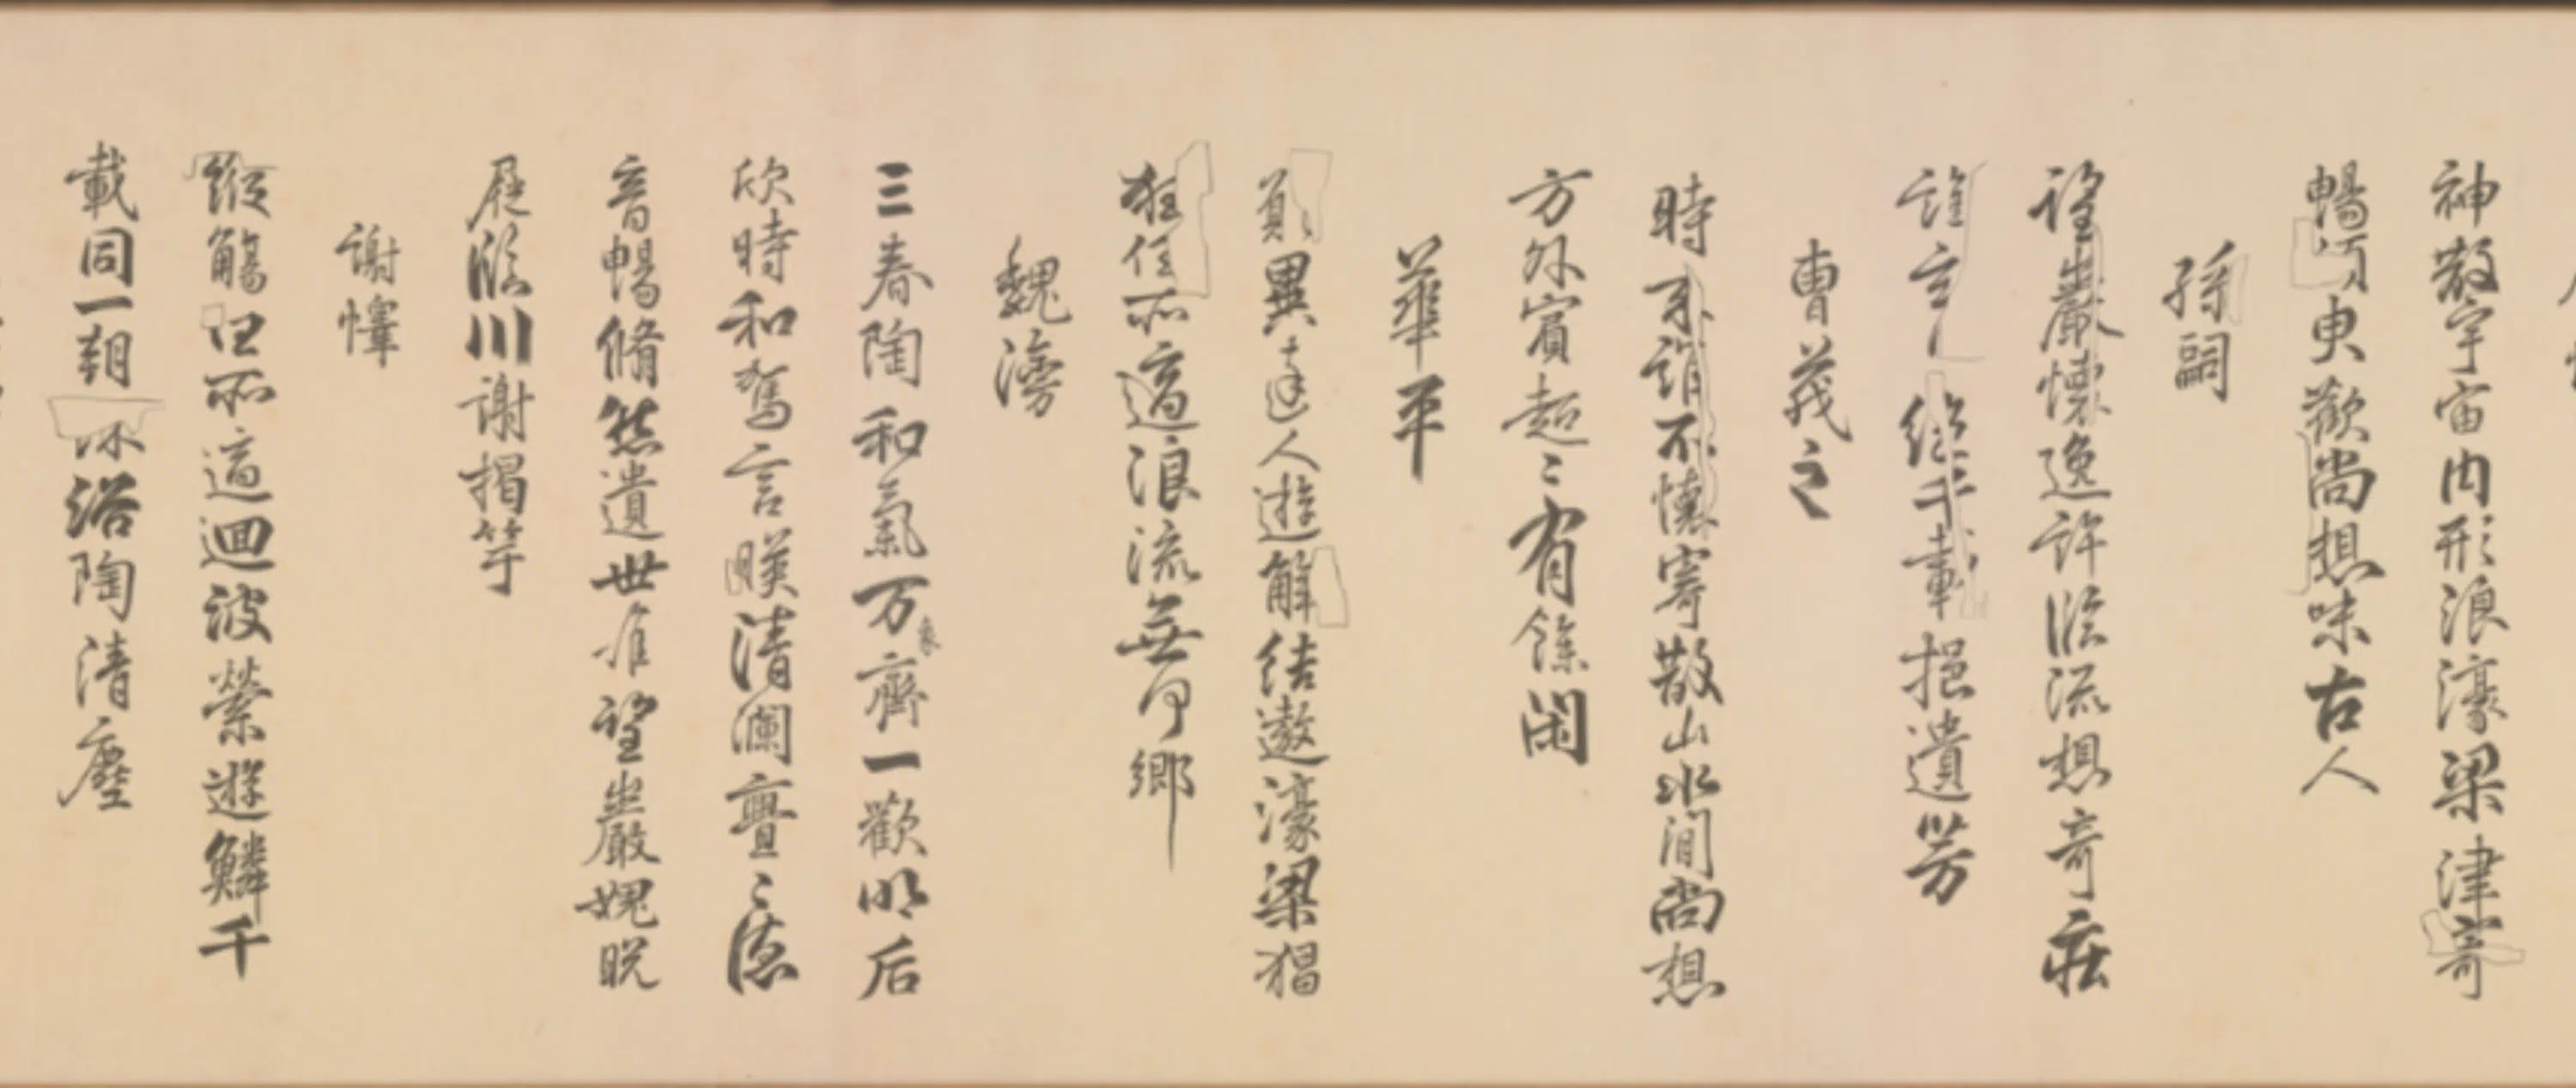 神散宇宙内形浪濠梁津寄
暢須臾歡尚想味古人
孫嗣
望巖懷逸許臨流想奇莊
誰云真風絕千載挹遺芳
曹茂之
時來誰不懷寄散山水間尚想
方外賓超〻有餘閑
華平
願與達人遊解結遨濠梁狂
狂任所適浪流無何鄉
魏滂
三春陶和氣万象齊一歡明后
欣時和駕言暎清瀾亹〻德
音暢脩然遺世難望巖媿脫
屣臨川謝揭竿
謝懌
縱觴任所適迴波縈遊鱗千
載同一朝沐浴陶清塵